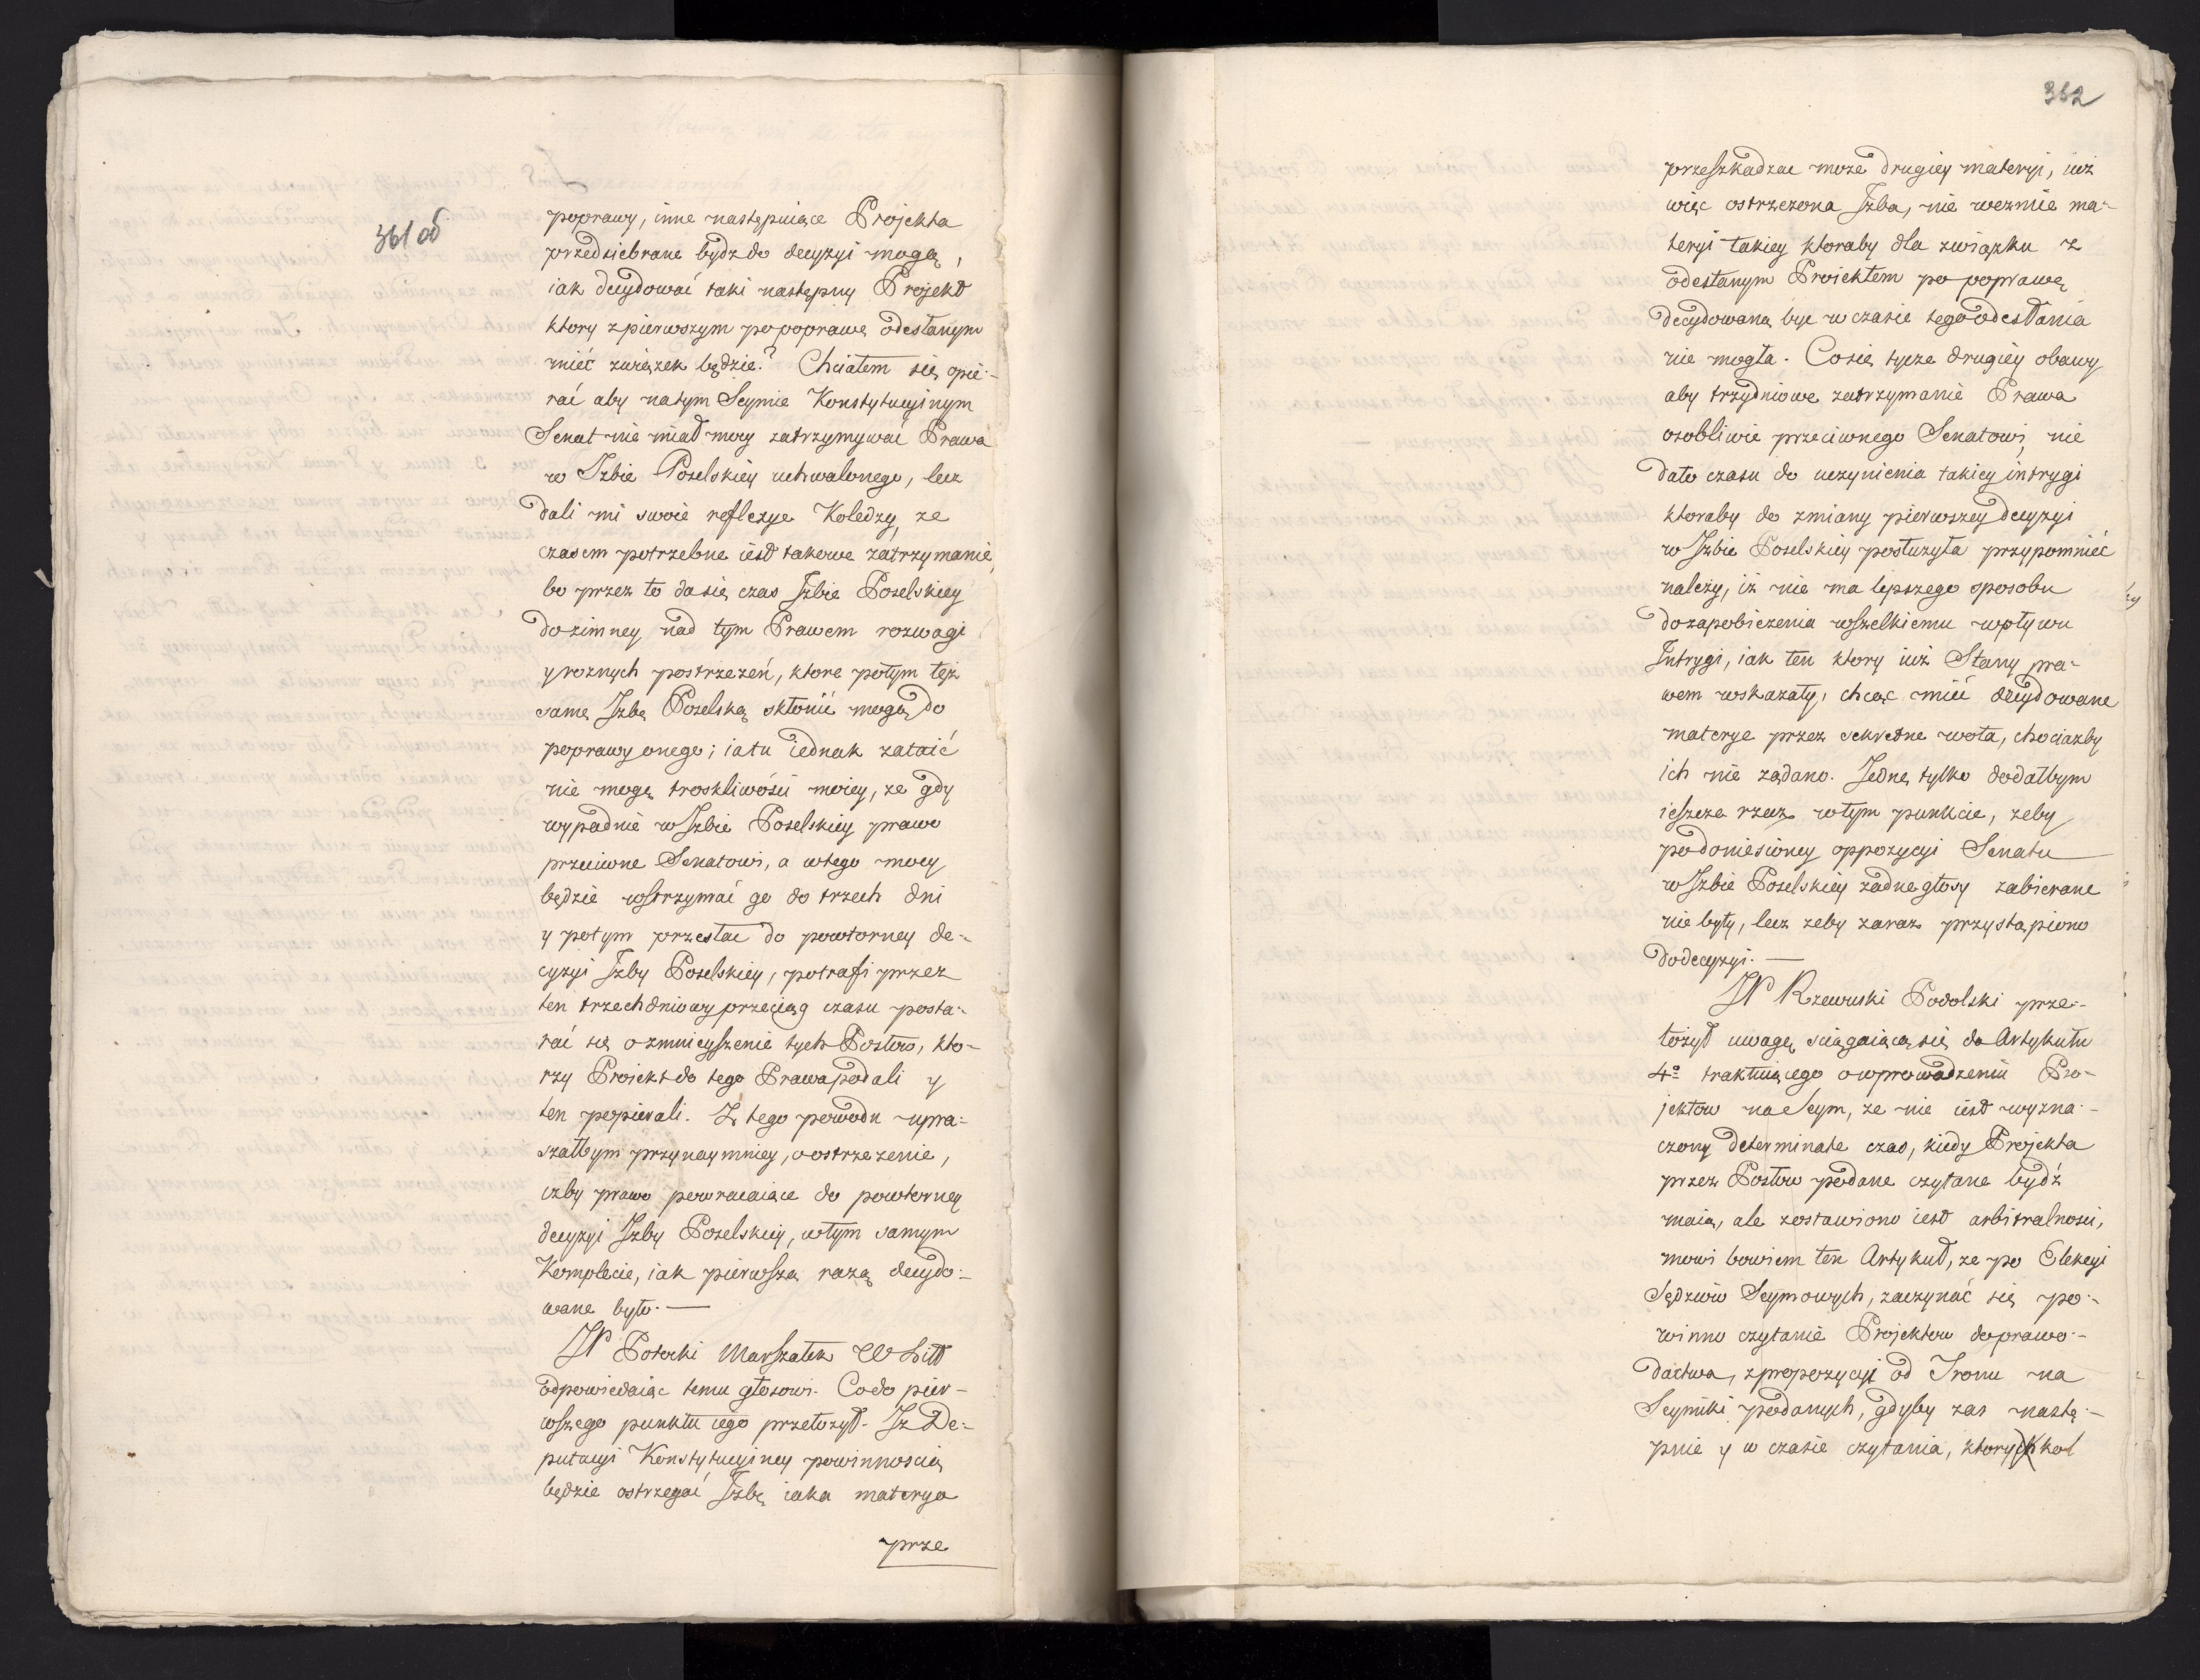 361 об
poprawy, inne następuiące Projekta
przedsiebrane bydz do decyzyi mogą,
iak decydować taki następny Projekt
ktory z pierwszym po poprawę odesłanym
mieć związek będzie? Chciałem się opie-
rać aby na tym Seymie Konstytucyinym
Senat nie miał mocy zatrzymywać Prawa
w Izbie Poselskiey uchwalonego, lecz
dali mi swoie reflexye Koledzy, ze
czasem potrzebne iest takowe zatrzymanie,
bo przez to da się czas Izbie Poselskiey
do zimney nad tym Prawem rozwagi
y roznych postrzezeń, ktore potym tęż
samę Izbę Poselską skłonić mogą do
poprawy onego; ia tu iednak zataić
nie mogę troskliwości moiey, ze gdy
wypadnie w Izbie Poselskiey prawo
przeciwne Senatowi, a w tego mocy
będzie wstrzymać go do trzech dni
y potym przesłac do powtorney de-
cyzyi Izby Poselskiey, potrafi przez
ten trzechdniowy przeciąg czasu posta-
rać się o zmnieyszenie tych Posłow, kto-
rzy Proiekt do tego Prawa podali y
ten popierali. Z tego powodu upra-
szałbym przynaymniey, o ostrzezenie,
izby prawo powracaiące do powtorney
decyzyi Izby Poselskiey, w tym samym
Komplecie, iak pierwszą razą decydo-
wane było. —
JP Potocki Marszałek W Litt
odpowiedaiąc temu głosowi. Co do pier-
wszego punktu iego przełozył. Iz De-
putacyi Konstytucyiney powinnoscią
będzie ostrzegać Izbę iaka materya
prze
362
przeszkadzac moze drugiey materyi, iuz
więc ostrzezona Izba, nie wezmie ma-
teryi takiey ktoraby dla związku z
odesłanym Proiektem po poprawę
decydowaną byc w czasie tego odesłania
nie mogła. Co się tycze drugiey obawy
aby trzydniowe zatrzymanie Prawa
osobliwie przeciwnego Senatowi, nie
dało czasu do uczynienia takiey intrygi
ktoraby do zmiany pierwszey decyzyi
w Izbie Poselskiey posłuzyła przypomnieć
należy, iż nie ma lepszego sposobu
do zapobiezenia wszelkiemu wpływu
Intrygi, iak ten ktory iuż Stany pra-
wem wskazały, chcąc mieć decydowane
materye przez sekretne wota, chociazby
ich nie ządano. Jednę tylko dodałbym
ieszcze rzecz w tym punkcie, zeby
po doniesioney oppozycyi Senatu
w Izbie Poselskiey zadne głosy zabierane
nie były, lecz zeby zaraz przystąpiono
do decyzyi. —
JP Rzewuski Podolski prze-
łożył uwagę sciągaiącą się do Artykułu
4º traktuiącego o wprowadzeniu Pro-
jektow na Seym, ze nie iest wyzna-
czony determinate czas, kiedy Projekta
przez Posłow podane czytane bydź
maią, ale zostawiono iest arbitralnosci,
mowi bowiem ten Artykuł, ze po Elekcyi
Sędziow Seymowych, zaczynać się po-
winno czytanie Projektow do prawo-
dactwa, z propozycyi od Tronu na
Seymiki podanych, gdyby zas nastę-
pnie y w czasie czytania, ktorychkol